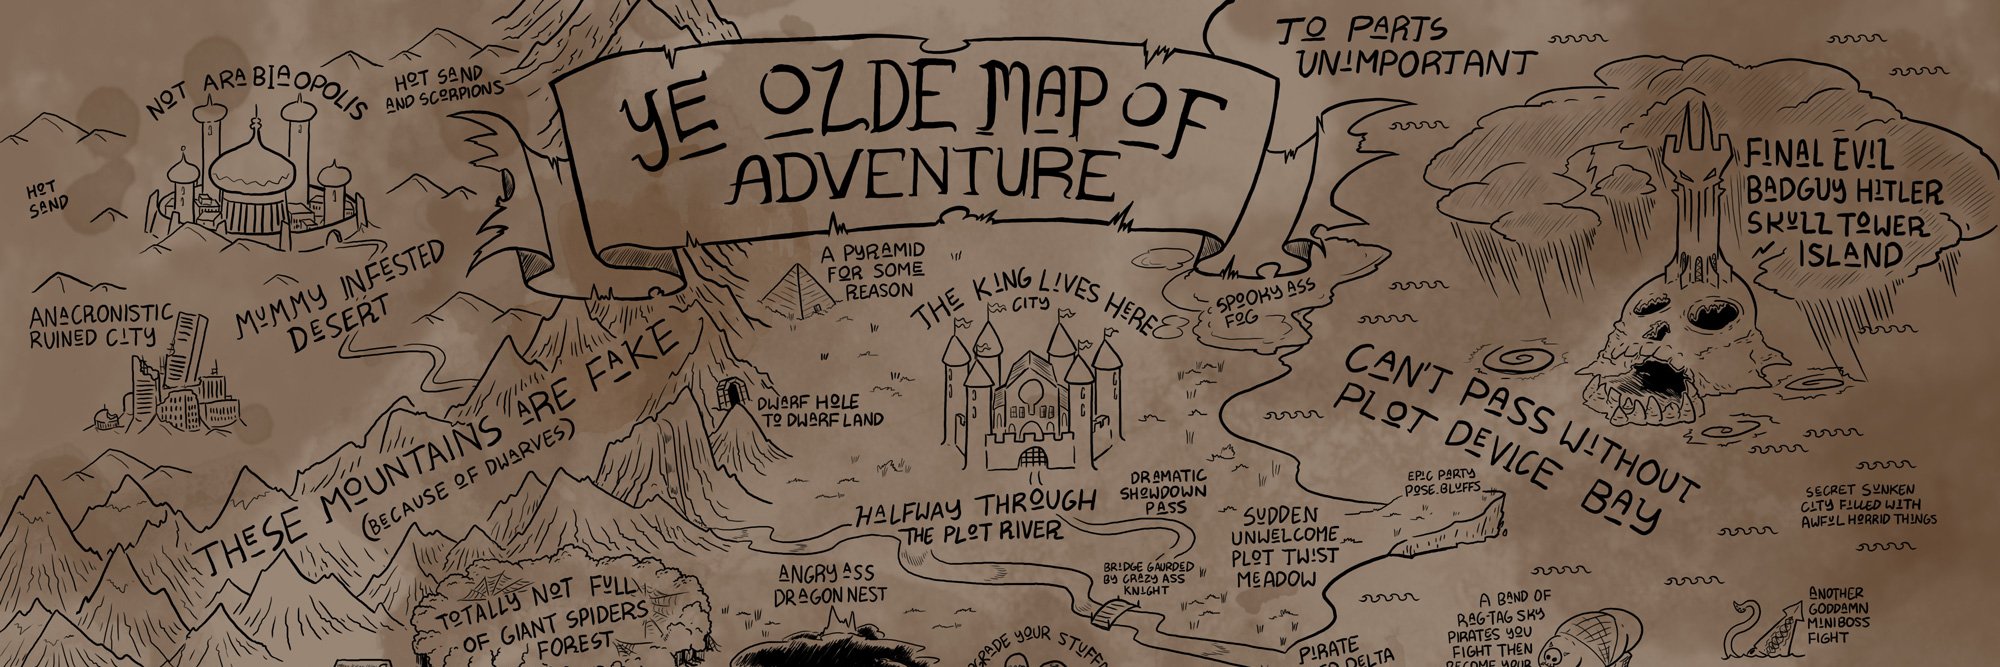 TO PARTS
UNIMPORTANT
YE OLDE MAP OF
ADVENTURE
NOT ARABIAOPOLIS
HOT SAND
AND SCORPIONS
HOT
SAND
FINAL EVIL
BADGUY HITLER
SKULL TOWER
ISLAND
MUMMY INFESTED
DESERT
ANACRONISTIC
RUINED CITY
A PYRAMID
FOR SOME
REASON
THE KING LIVES HERE
CITY
SPOOKY ASS
FOG
THESE MOUNTAINS ARE FAKE
(BECAUSE OF DWARVES)
DWARF HOLE
TO DWARF LAND
CAN'T PASS WITHOUT
PLOT DEVICE BAY
HALFWAY THROUGH
THE PLOT RIVER
DRAMATIC
SHOWDOWN
PASS
EPIC PARTY
POSE BLUFFS
SUDDEN
UNWELCOME
PLOT TWIST
MEADOW
SECRET SUNKEN
CITY FILLED WITH
AWFUL HORRID THINGS
BRIDGE GAURDED
BY CRAZY ASS
KNIGHT
TOTALLY NOT FULL
OF GIANT SPIDERS
FOREST
ANGRY ASS
DRAGON NEST
A BAND OF
RAG-TAG SKY
PIRATES YOU
FIGHT THEN
BECOME YOUR
ANOTHER
GODDAMN
MINIBOSS
FIGHT
YOUR STUFF
PIRATE
DELTA